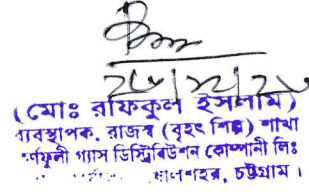 ২৮/১২/২০
(মোঃ রফিকুল ইসলাম)
ব্যবস্থাপক, রাজস্ব (বৃহৎ শিল্প) শাখা
কর্ণফুলী গ্যাস ডিস্ট্রিবিউশন কোম্পানী লিঃ
হালিশহর, চট্টগ্রাম।